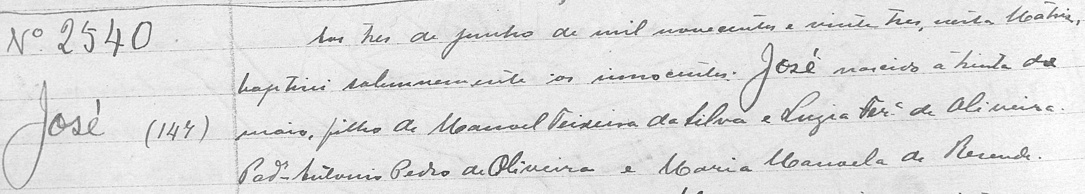 Nº 2540
José (147)
Aos tres de junho de mil novecentos e vinte tres, nesta Matriz,
baptisei solemnemente os innocentes: José nascido á trinta de
maio, filho de Manoel Teixeira da Silva e Luzia Ferª de Oliveira.
Padº Antonio Pedro de Oliveira e Maria Manoela de Resende.